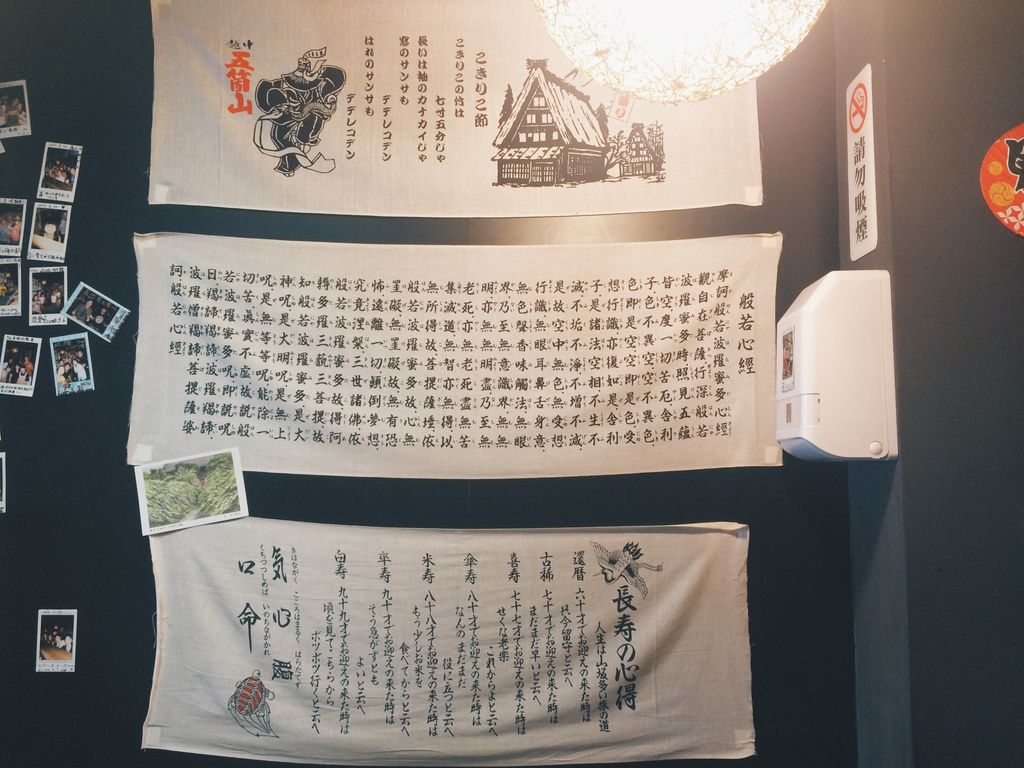 こきりこ節
こきりこの竹は
七寸五分じゃ
長いは袖のカナカイじゃ
窓のサンサも
デデレコデン
はれのサンサも
デデレコデン
越中
五箇山
請勿吸煙
般若心經
摩訶般若波羅蜜多心經
觀自在菩薩行深般若
波羅蜜多時照見五蘊
皆空度一切苦厄舎利
子色不異空空不異色
色即是空空即是色受
想行識亦復如是舎利
子是諸法空相不生不
滅不垢不淨不增不減
是故空中無色無受想
行識無眼耳鼻舌身意
無色聲香味觸法無眼
界乃至無意識界無無
明亦無無明盡乃至無
老死亦無老死盡無苦
集滅道無智亦無得以
無所得故菩提薩埵依
般若波羅蜜多故心無
罣礙無罣礙故無有恐
怖遠離一切顛倒夢想
究竟涅槃三世諸佛依
般若波羅蜜多故得阿
耨多羅三藐三菩提故
知般若波羅蜜多是大
神呪是大明呪是無上
呪是無等等呪能除一
切苦真實不虛故説般
若波羅蜜多呪即説呪
曰羯諦羯諦波羅羯諦
波羅僧羯諦菩提薩婆
訶般若心經
長寿の心得
人生は山坂多い旅の道
還暦 六十才でお迎えの来た時は
只今留守と云へ
古稀 七十才でお迎えの来た時は
まだまだ早いと云へ
喜寿 七十七才でお迎えの来た時は
せくな老楽
これからよと云へ
傘寿 八十才でお迎えの来た時は
なんのまだまだ
役に立つと云へ
米寿 八十八才でお迎えの来た時は
もう少しお米を
食べてからと云へ
卒寿 九十才でお迎えの来た時は
そう急がずとも
よいと云へ
白寿 九十九才でお迎えの来た時は
頃を見てこちらから
ボツボツ行くと云へ
きはながく こころはまるく はらたてず
気 心 腹
くちつつしめば いのちながかれ
口 命